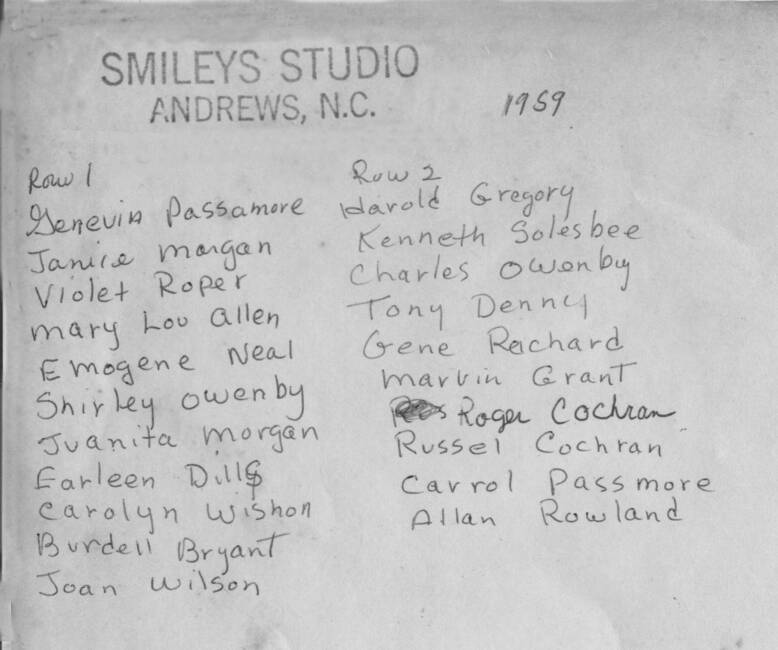 SMILEYS STUDIO
ANDREWS, N.C.
1959
Row 1
Genevin Passamore
Janice Morgan
Violet Roper
Mary Lou Allen
Emogene Neal
Shirley Owenby
Juanita Morgan
Earleen Dills
Carolyn Wishon
Burdell Bryant
Joan Wilson
Row 2
Harold Gregory
Kenneth Solesbee
Charles Owenby
Tony Denny
Gene Rachard
Marvin Grant
Roger Cochran
Russel Cochran
Carrol Passmore
Allan Rowland